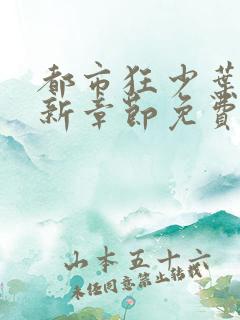 都市狂少葉
新章節免費
山本五十六
未经同意禁止转载